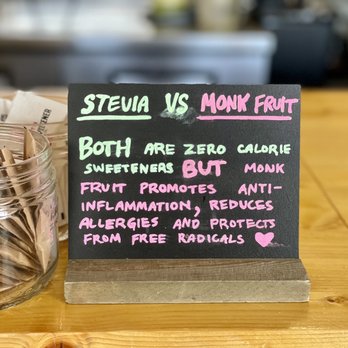 STEVIA VS MONK FRUIT
BOTH ARE ZERO CALORIE
SWEETENERS BUT MONK
FRUIT PROMOTES ANTI-
INFLAMMATION, REDUCES
ALLERGIES AND PROTECTS
FROM FREE RADICALS ♥